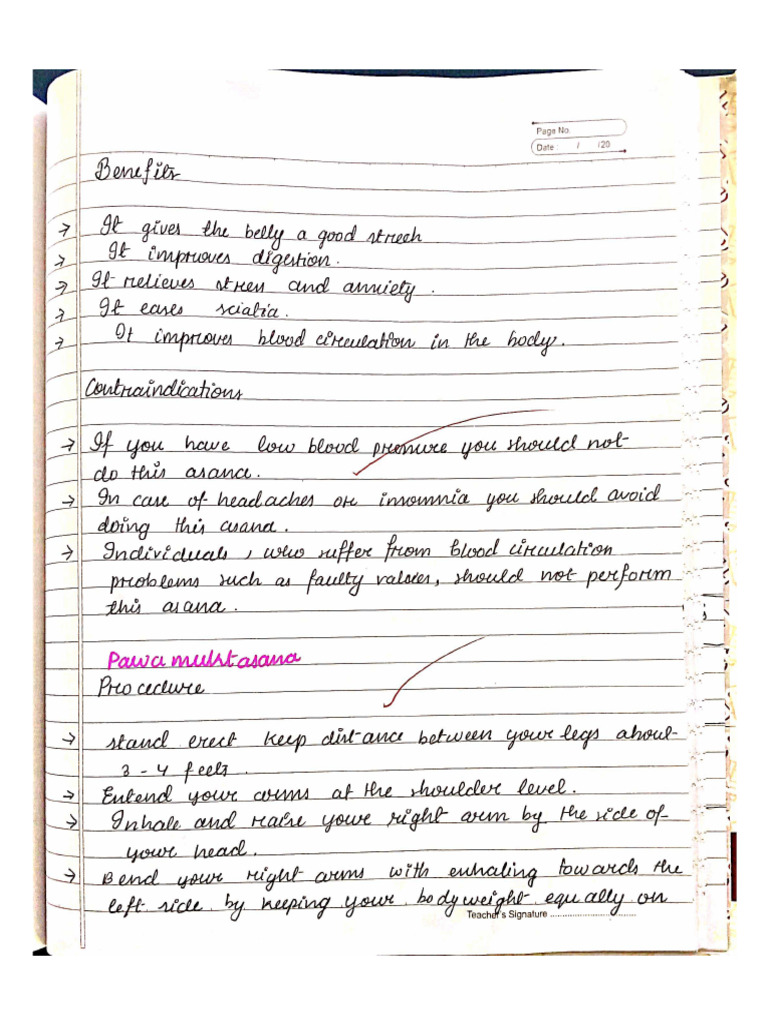 Page No.
Date : / /20
Benefits
→ It gives the belly a good strech
→ It improves digestion.
→ It relieves stress and anxiety.
→ It eases sciatia.
→ It improves blood circulation in the body.
Contraindications
→ If you have low blood pressure you should not
do this asana.
→ In case of headaches or insomnia you should avoid
doing this asana.
→ Individuals, who suffer from blood circulation
problems such as faulty valsies, should not perform
this asana.
Pawamuktasana
Procedure
→ stand erect keep distance between your legs about
3 - 4 feets.
→ Extend your arms at the shoulder level.
→ Inhale and raise your right arm by the side of
your head.
→ Bend your right arms with enhaling towards the
left side by keeping your bodyweight equally on
Teacher's Signature ................................